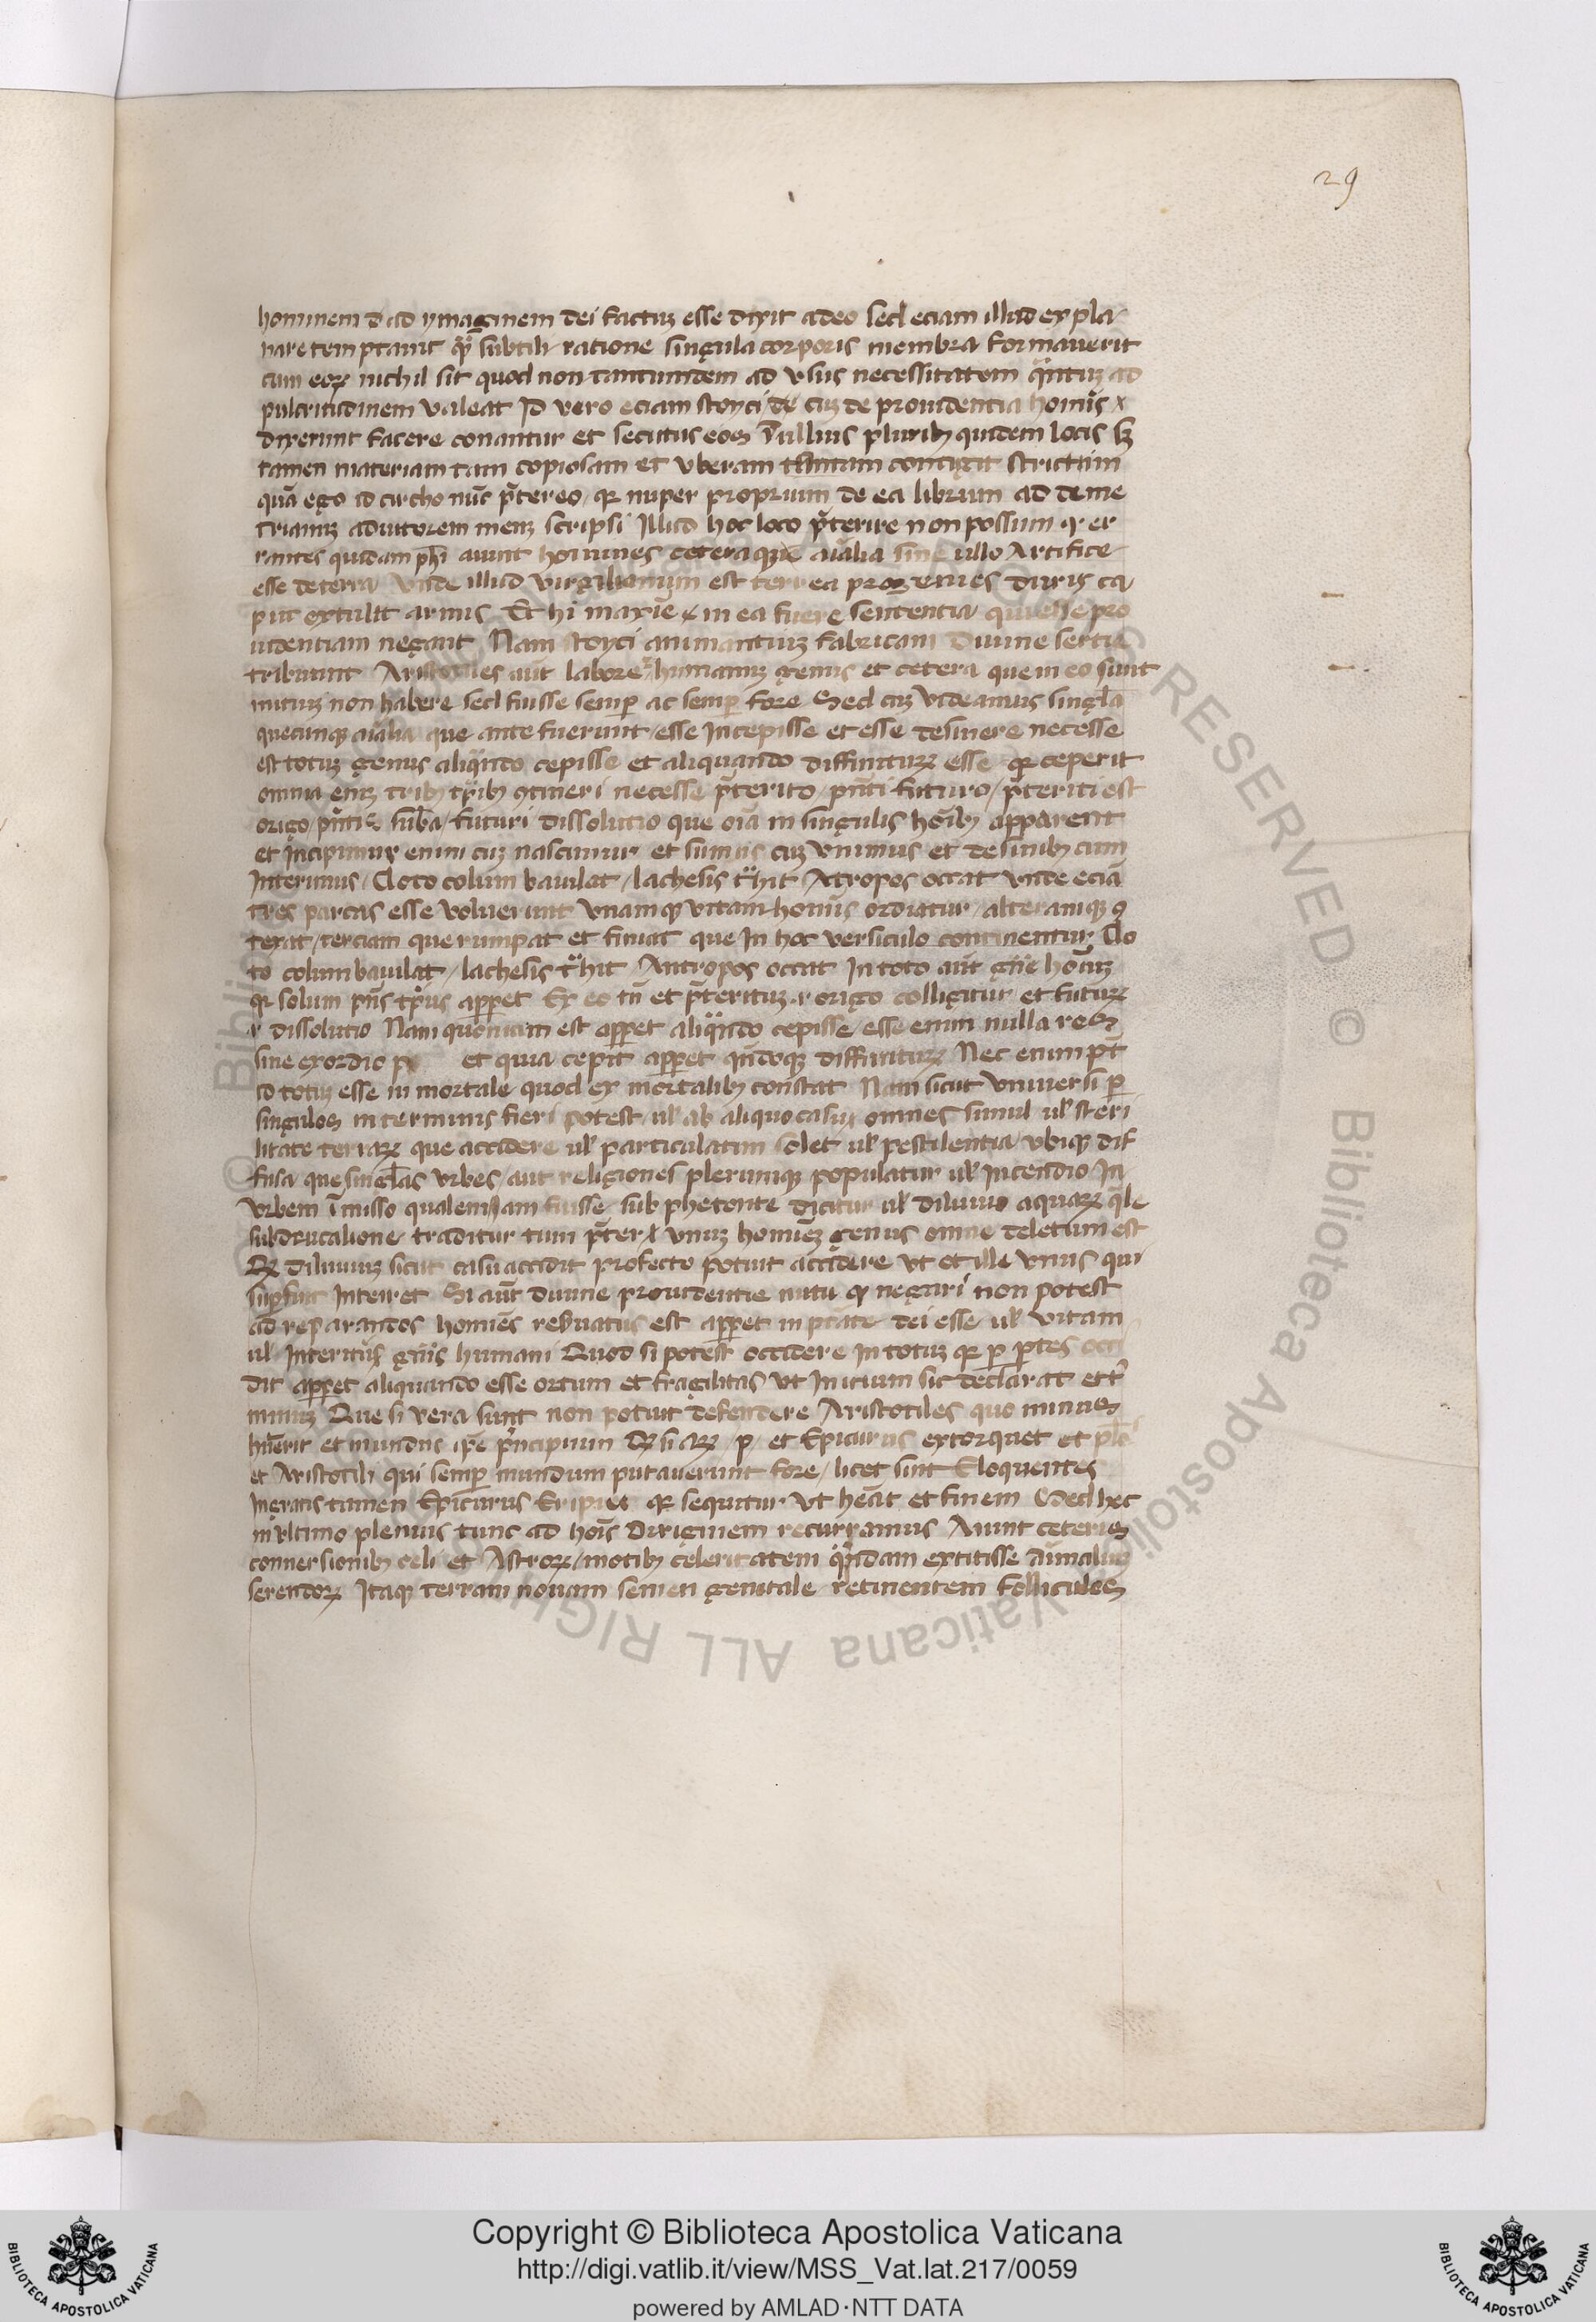 29
hominem d ad ymaginem dei factuꝫ esse dixit a deo sed eciam illud expla
nare temptauit qͣ subtili racione singula corporis membra formauerit
cum eoꝝ nichil sit quod non tantundem ad vsus necessitatem qͣntuꝫ ad
pulcritudinem valeat Id vero eciam stoyci de cuꝫ de prouidentia homis
dixerunt facere conantur et secutus eos Tullius pluribꝫ quidem locis sꝫ
tamen materiam tam copiosam et vberam tantam contigit strictim
quā ego id circho nūc p̄tereo qꝛ nuper proprium de ea librum ad deme
trianuꝫ aduitorem meuꝫ scripsi Illud hoc loco p̄terire non possum qꝛ er
rantes quidam phi aiunt homines ceteraqꝫ aīalia sine ullo Artifice
esse de terra Vnde illud virgilianum est terrea progenies duris ca
put extulit aruis Et hi maxīe in ea fuere sentencia qui esse pro
uidentiam negant Nam stoyci animantiuꝫ fabricam diuine
tribuunt Aristotiles aūt labore humanuꝫ genus et cetera que in eo sunt
inituꝫ non habere sed fuisse semꝑ ac semꝑ fore Sed cuꝫ videamus singl̄a
quecunqꝫ aīalia que ante fuerunt esse incepisse et esse desinere necesse
est totuꝫ genus aliqͣndo cepisse et aliquando diffinituꝝ esse qꝛ ceperit
omnia eniꝫ tribꝫ tp̄ibꝫ ꝯtineri necesse p̄terito p̄nti futuro p̄teriti est
origo p̄ntis sub̄a futuri dissolutio que oīa in singulis hoībꝫ apparent
et incipimur enim cuꝫ nascimur et sumus cuꝫ viuimus et desinibꝫ cum
interimus Cloto colum bauilat lachesis tͣhit Atropos occat vnde eciā
tres parcas esse voluerunt vnamqꝫ vitam homis ordiatur alteramqꝫ ꝯ
texat terciam que rumpat et finiat que in hoc versiculo continentur Clo
to colum bauilat lachesis tͣhit Antropos occat In toto aūt gn̄e homuꝫ
qꝛ solum p̄ns tp̄us apꝑet Ex eo tn̄ et p̄teritu r origo colligitur et futuꝝ
r dissolutio Nam quoniam est apꝑet aliqͣndo cepisse esse enim nulla res
sine exordio pt et quia cepit apꝑet qn̄doqꝫ diffinituꝝ Nec enim pt̄
id totuꝫ esse in mortale quod ex mortalibꝫ constat Nam sicut vniuersi ꝑ
singulos in terminis fieri potest ul̄ ab aliquo casu omnes simul ul̄ steri
litate terraꝝ que accidere ul̄ particulatim solet ul̄ pestilentia vbiqꝫ dif
fusa que singl̄as vrbes aut religiones plerumqꝫ populatur ul̄ Incendio In
vrbem īmisso qualem iam fuisse sub phetonte dicitur ul̄ diluuio aquaꝝ qͣle
sub deucalione traditur tum p̄ter vnuꝫ homīeꝫ genus omne deletum est
Qꝫ diluuiuꝫ sicut casu accidit profecto potuit accidere vt et ille vnus qui
suꝑfuit Interiret Si aūt diuine prouidentie nutu qꝛ negari non potest
ad reparandos homīes reseruatus est apꝑet in ptāte dei esse ul̄ vitam
ul̄ Interitus gn̄is humani Quod si potest occidere in totuꝫ qꝛ ꝑ ꝑtes occi
dit apꝑet aliquando esse ortum et fragilitas vt Inicium sic declarat et t̄
minuꝫ Que si vera sunt non potuit defendere Aristotiles quo minus
hūerit et mundus ip̄e p̄ncipium Qꝫ si et Epicurus extorquet et ple
et Aristotili qui semꝑ mundum putauerunt fore licet sint Eloquentes
ingratis tamen Epicurus Eripiet qꝛ sequitur vt heāt et finem Sed hec
in vltimo plenius tunc ad hois Originem recurramus Aiunt ceteris
conuersionibꝫ celi et Astroꝝ motibꝫ celeritatem qͣndam extitisse animaliuꝫ
serendoꝝ Itaqꝫ terram nouam semen genitale retinentem folliculos
© Biblioteca Apostolica Vaticana ALL RIGHTS RESERVED
Copyright © Biblioteca Apostolica Vaticana
http://digi.vatlib.it/view/MSS_Vat.lat.217/0059
powered by AMLAD·NTT DATA
BIBLIOTECA APOSTOLICA VATICANA
BIBLIOTECA APOSTOLICA VATICANA